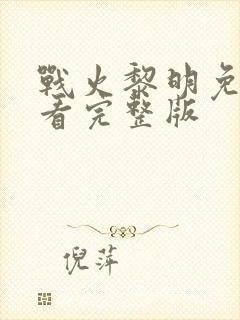 戰火黎明免
看完整版
倪萍